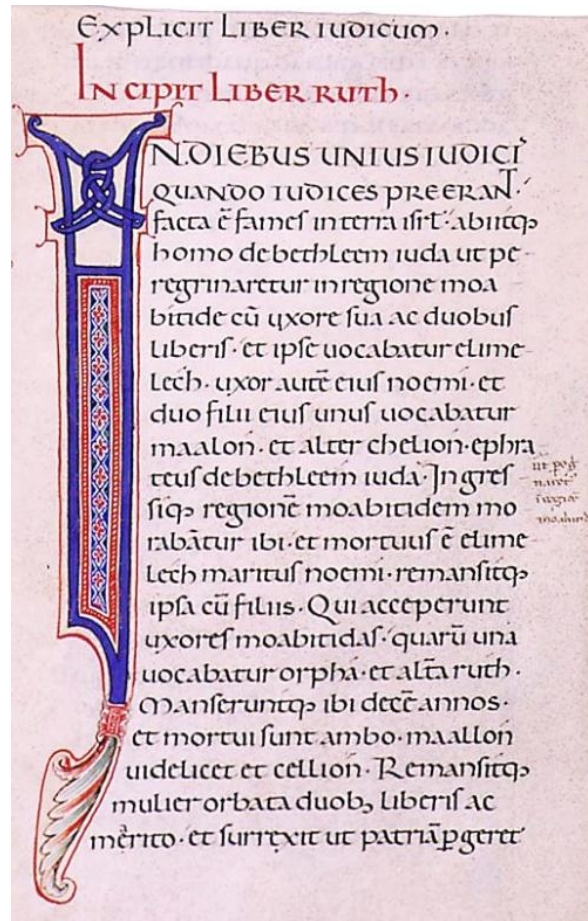 EXPLICIT LIBER IUDICUM ·
INCIPIT LIBER RUTH ·
IN DIEBUS UNIUS IUDICI
QUANDO IUDICES PREERANT ·
facta ē fames in terra isrł · abiitq;
homo de bethleem iuda ut pe-
regrinaretur in regione moa
bitide cū uxore sua ac duobus
liberis · et ipse uocabatur elime-
lech · uxor autē eius noemi · et
duo filii eius unus uocabatur
maalon · et alter chelion · ephra
teus de bethleem iuda · Ingres
siq; regionē moabitidem mo
rabātur ibi · et mortuus ē elime
lech maritus noemi · remansitq;
ipsa cū filiis · Qui acceperunt
uxores moabitidas · quarū una
uocabatur orpha · et alta ruth ·
Manseruntq; ibi decē annos ·
et mortui sunt ambo · maallon
uidelicet et cellion · Remansitq;
mulier orbata duob; liberis ac
marito · et surrexit ut patriā ꝑgeret